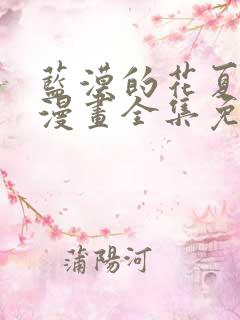 藍漠的花夏
漫畫全集免
蒲陽河